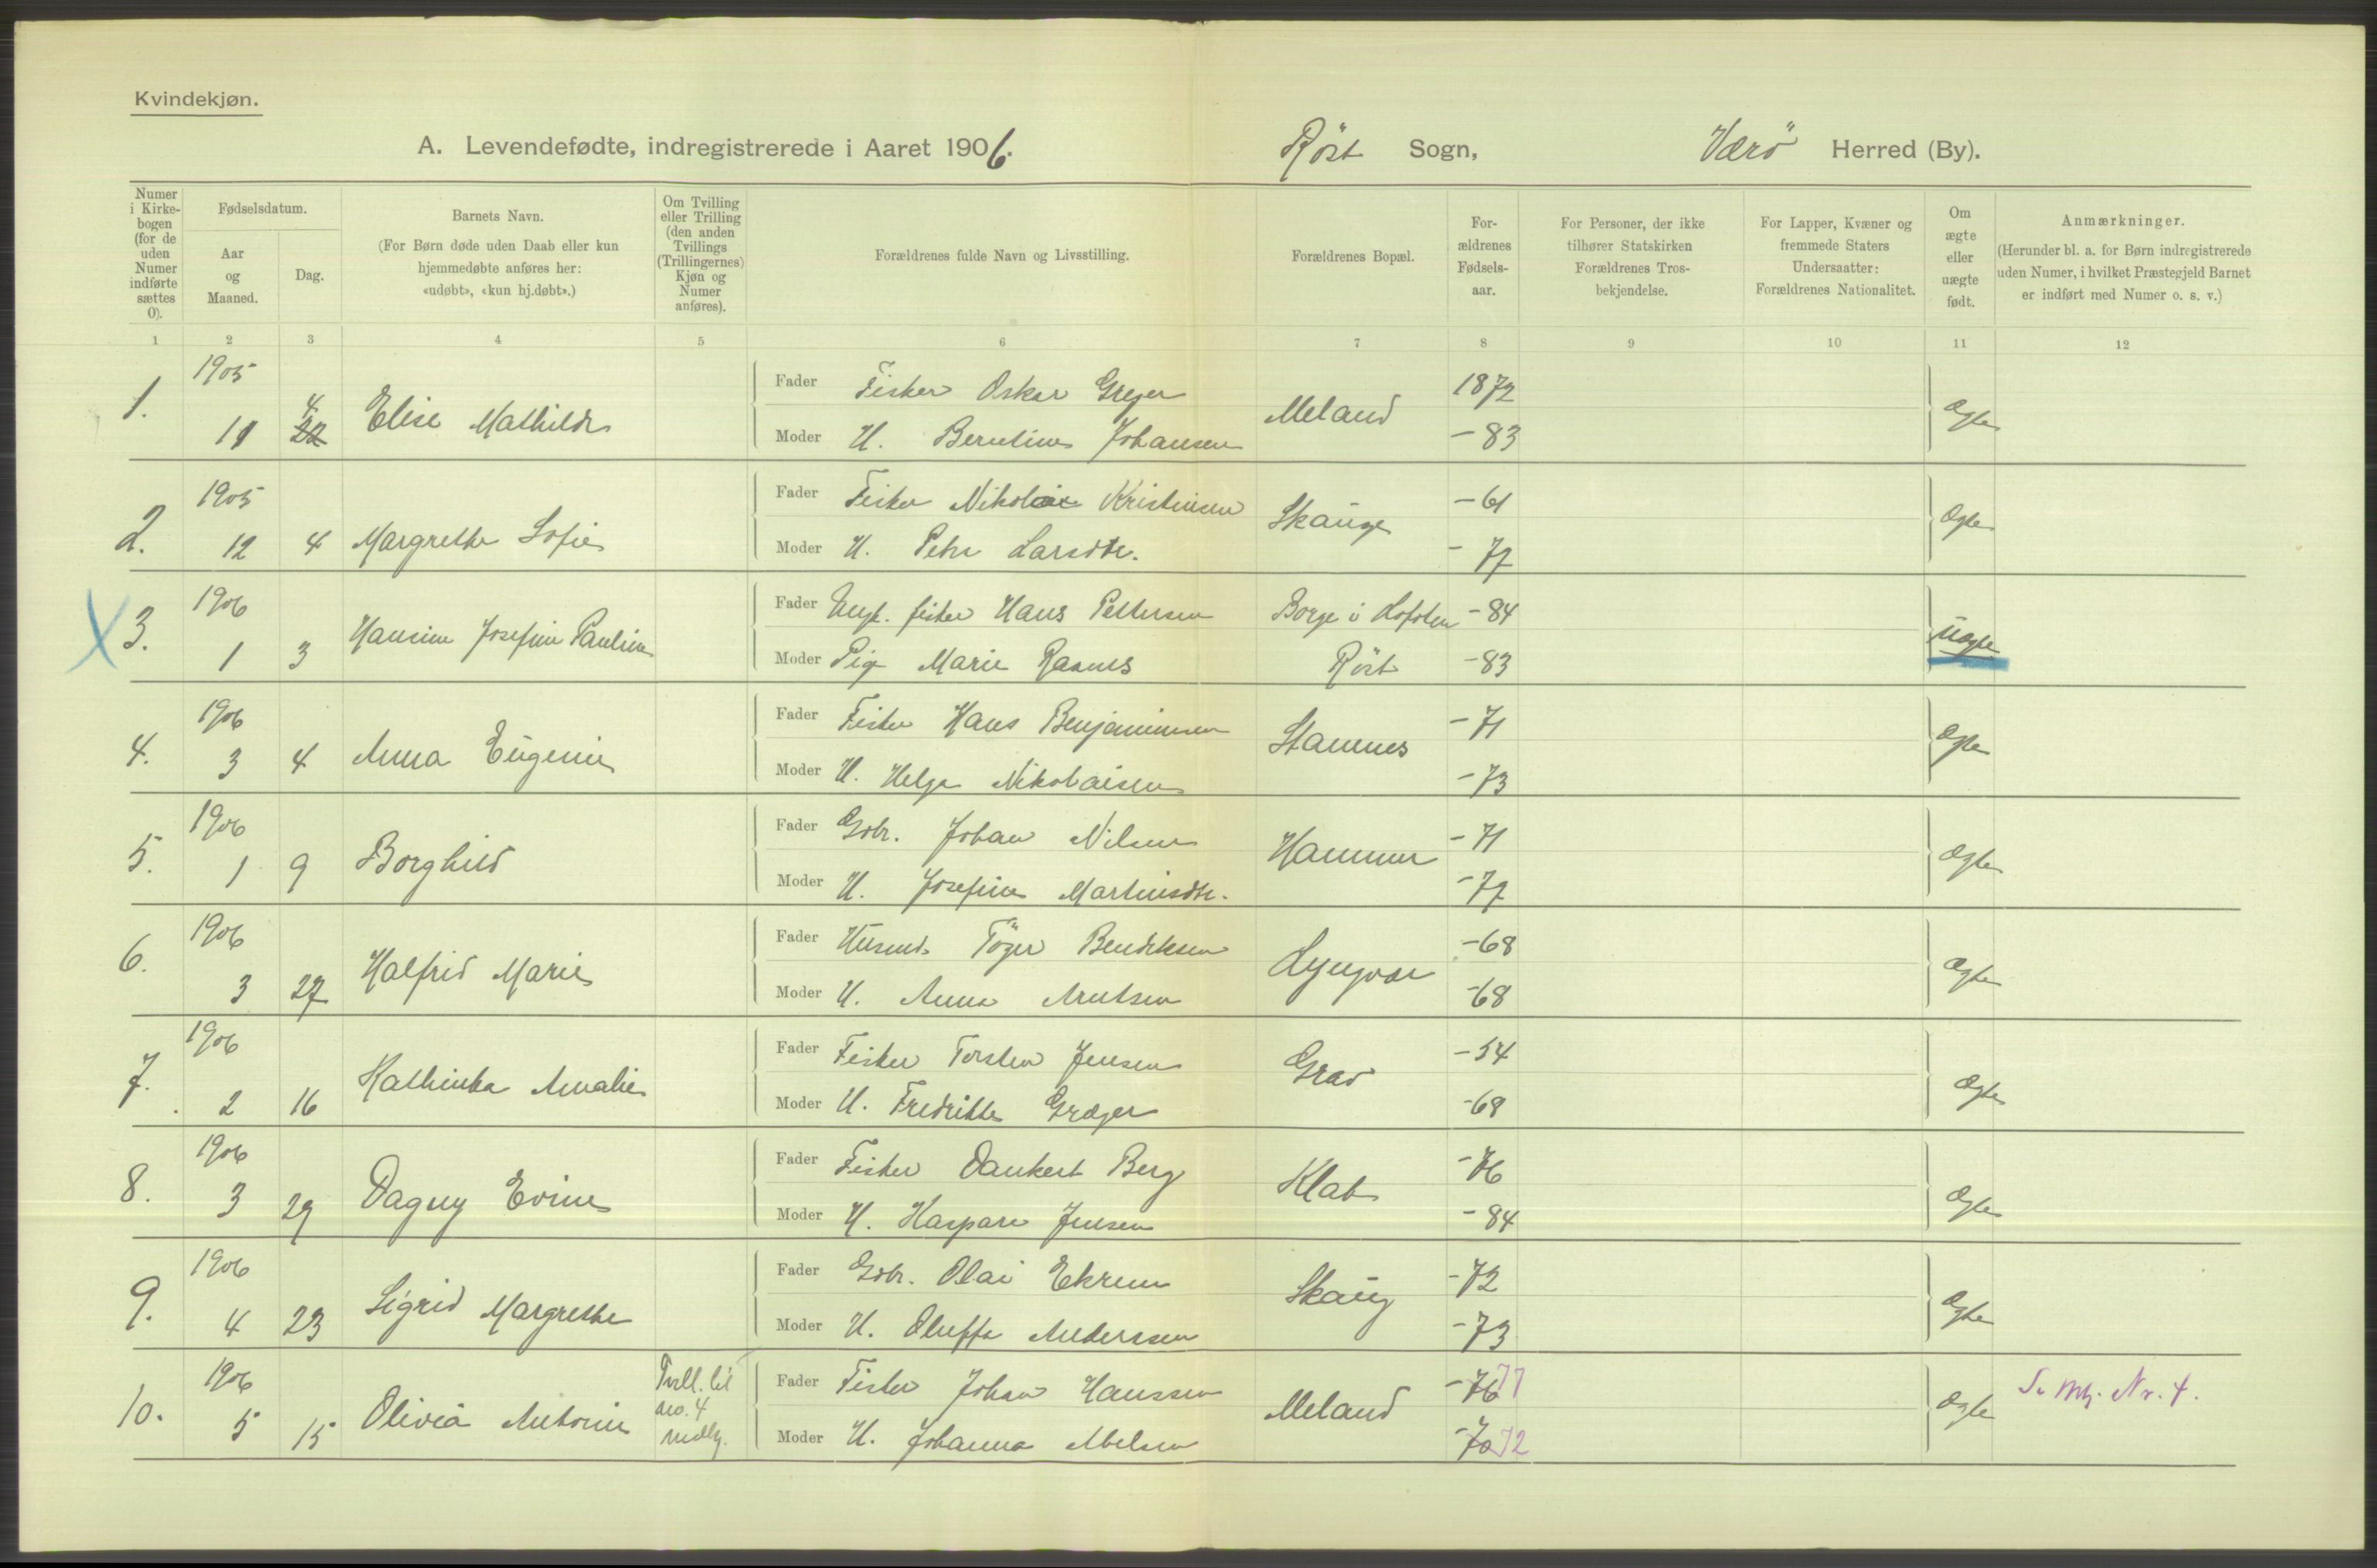 Kvindekjøn.
A. Levendefødte, indregistrerede i Aaret 1906. Röst Sogn, Værö Herred (By).
Numer i Kirke-bogen (for de uden Numer indførte sættes 0).
Fødselsdatum.
Aar og Maaned.
Dag.
Barnets Navn.
(For Børn døde uden Daab eller kun hjemmedøbte anføres her: «udøbt», «kun hj.døbt».)
Om Tvilling eller Trilling (den anden Tvillings (Trillingernes) Kjøn og Numer anføres).
Forældrenes fulde Navn og Livsstilling.
Forældrenes Bopæl.
For-ældrenes Fødsels-aar.
For Personer, der ikke tilhører Statskirken Forældrenes Tros-bekjendelse.
For Lapper, Kvæner og fremmede Staters Undersaatter: Forældrenes Nationalitet.
Om ægte eller uægte født.
Anmærkninger.
(Herunder bl. a. for Børn indregistrerede uden Numer, i hvilket Præstegjeld Barnet er indført med Numer o. s. v.)
1 2 3 4 5 6 7 8 9 10 11 12
1. 1905 11 22 4. Elise Mathilde Meland Ægte
Fader Fisker Oskar Greger 1872
Moder H. Berntine Johansen -83
2. 1905 12 4 Margrethe Sofie Skauge Ægte
Fader Fisker Nikolai Kristensen -61
Moder H. Petra Larsdtr. -77
3. 1906 1 3 Hansine Josefine Pauline Uægte
Fader Ungk. fisker Hans Pettersen Borge i Lofoten -84
Moder Pige Marie Raanes Röst -83
4. 1906 3 4 Anna Eugenie Stamnes Ægte
Fader Fisker Hans Benjaminsen -71
Moder H. Helga Nikolaisen -73
5. 1906 1 9 Borghild Hammer Ægte
Fader Gbr. Johan Nilsen -71
Moder H. Josefine Martinsdtr. -77
6. 1906 3 27 Halfrid Marie Lyngvær Ægte
Fader Husmd. Töger Bendiksen -68
Moder H. Anna Arntsen -68
7. 1906 2 16 Kathinka Amalie Grad Ægte
Fader Fisker Torsten Jensen -54
Moder H. Fredrikke Græger -68
8. 1906 3 29 Dagny Evine Klak Ægte
Fader Fisker Dankert Berg -76
Moder H. Kaspara Jensen -84
9. 1906 4 23 Sigrid Margrethe Skaug Ægte
Fader Gbr. Olai Ekrem -72
Moder H. Oluffa Anderssen -73
10. 1906 5 15 Olivia Antonie Tvill. til no. 4 mdlg. Meland Ægte S. Mk. Nr. 4.
Fader Fisker Johan Hanssen -76 77
Moder H. Johanna Abelsen -70 72